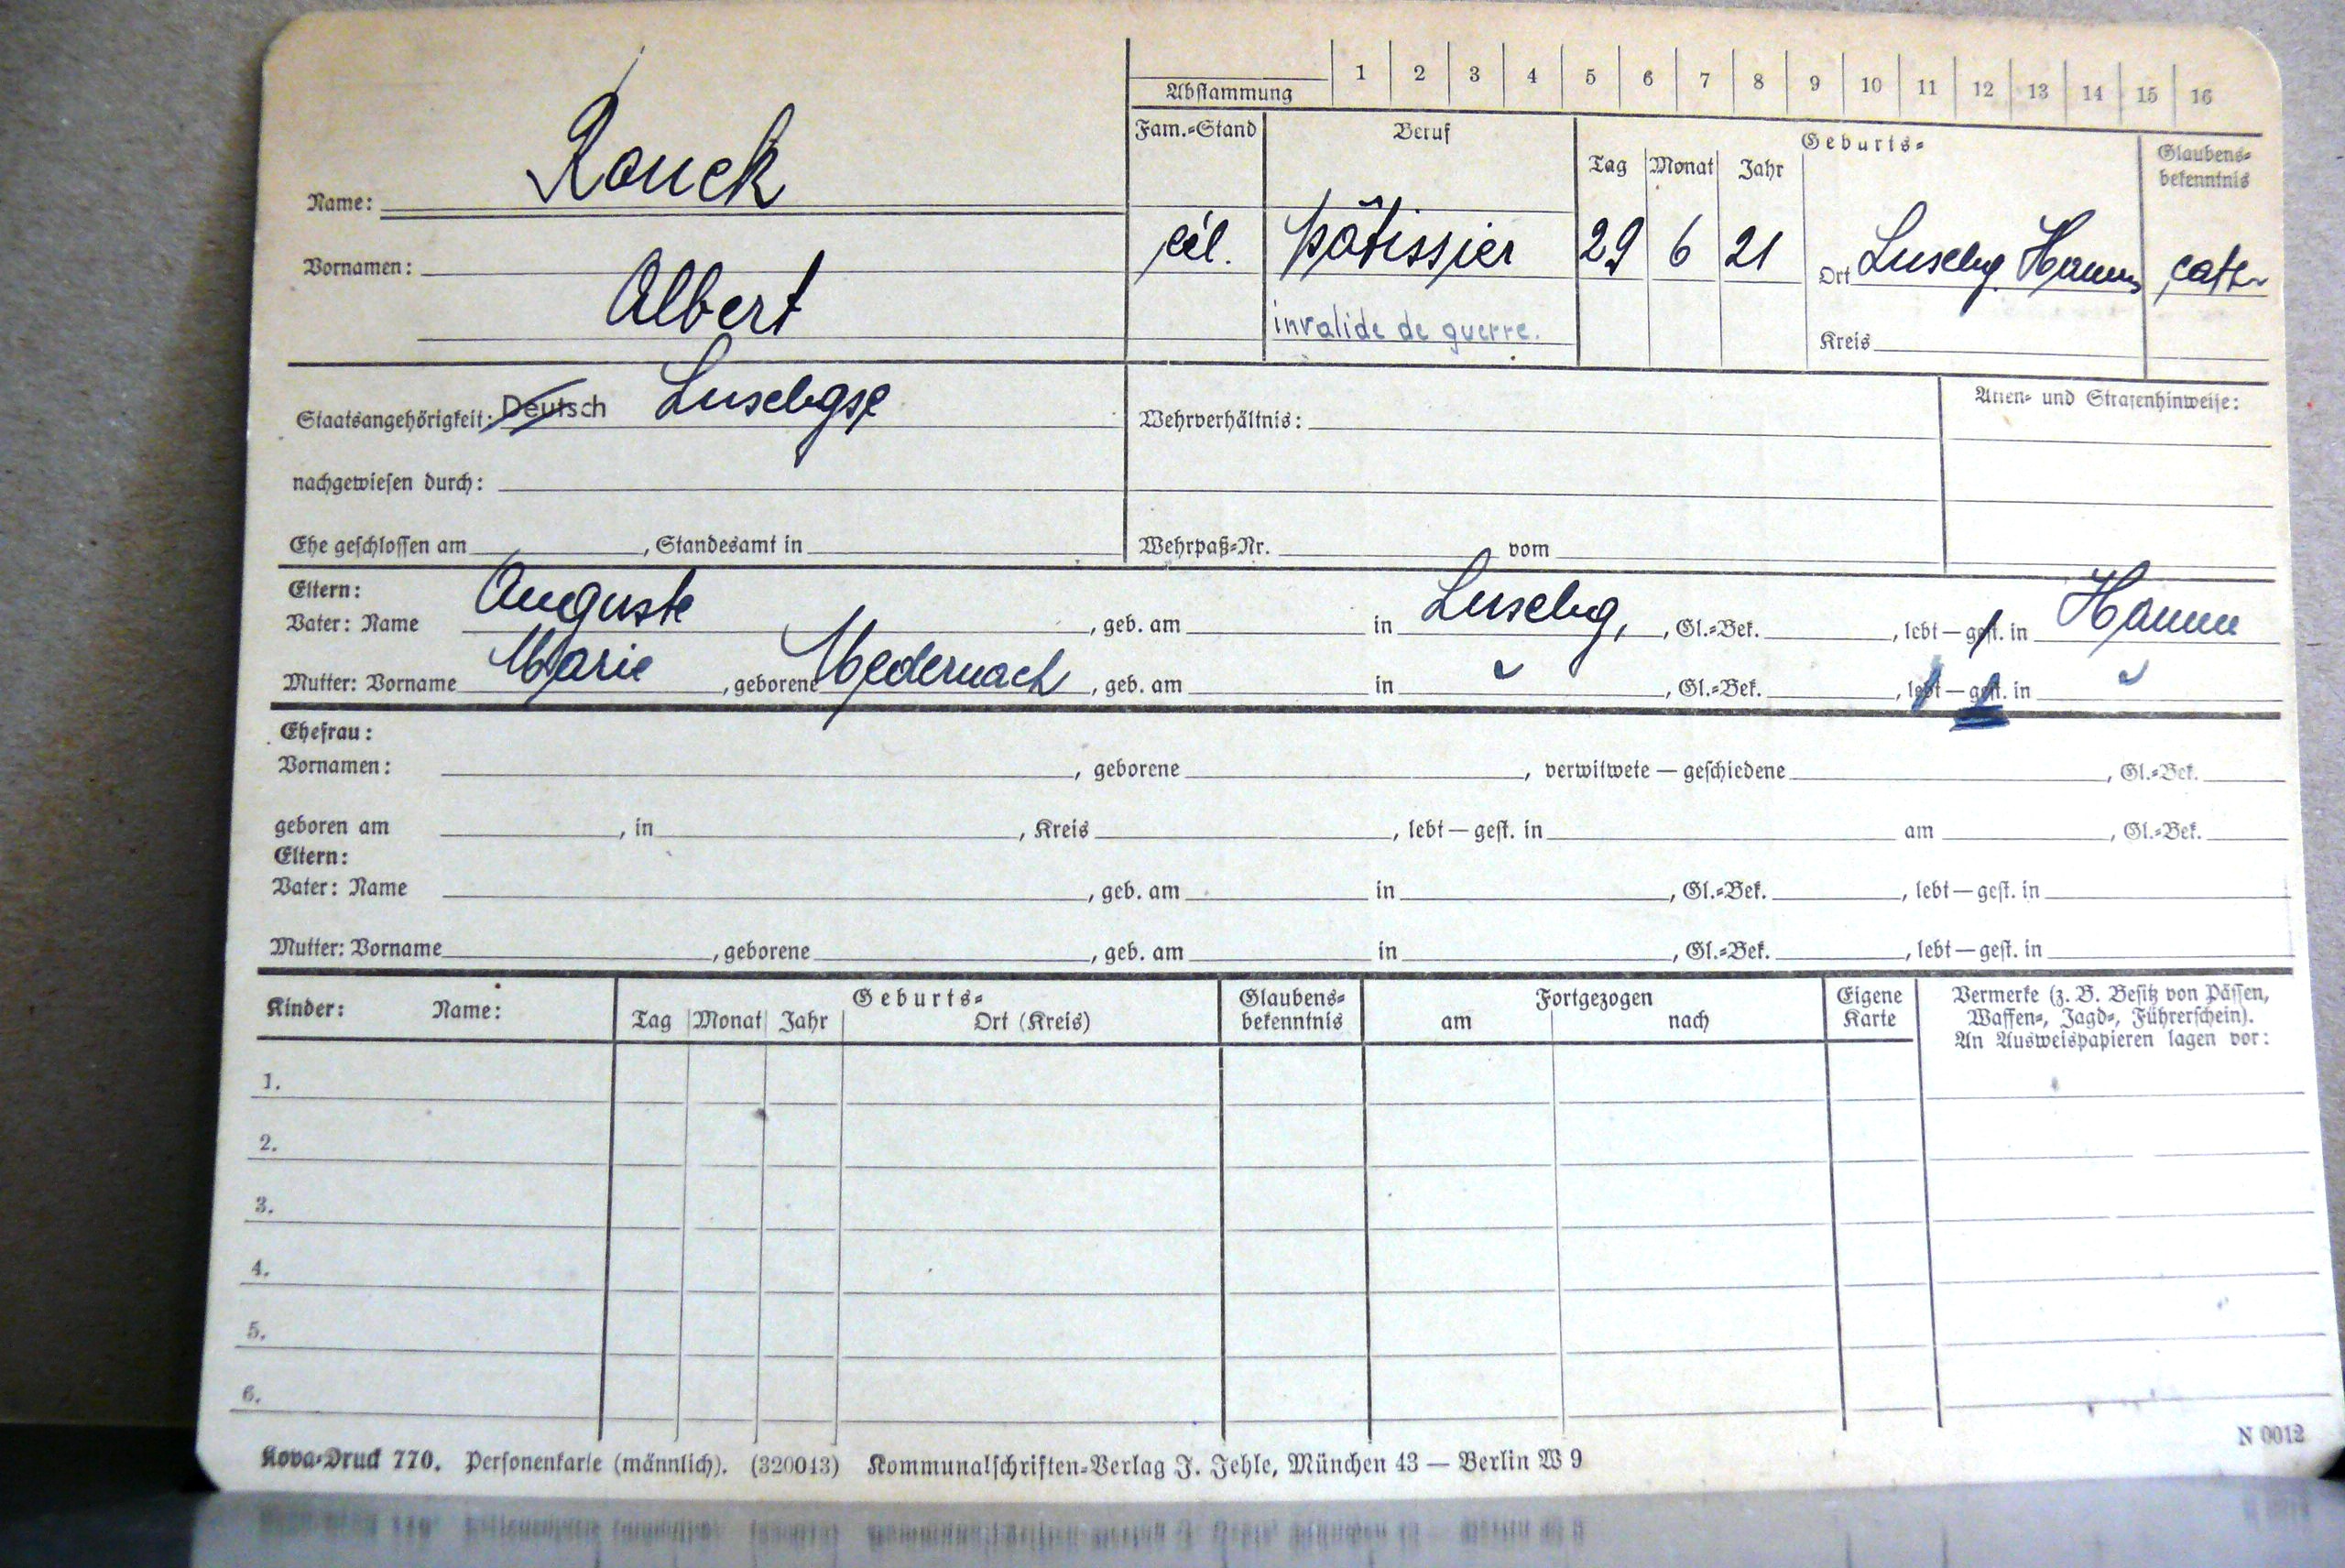 Abstammung 1 2 3 4 5 6 7 8 9 10 11 12 13 14 15 16
Name: Rouck
Vornamen: Albert
Fam.=Stand Beruf Geburts= Glaubens=
Tag Monat Jahr bekenntnis
cél. pâtissier 29 6 21 Ort Luxebg. Hamm cath
invalide de guerre. Kreis
Staatsangehörigkeit: Deutsch Luxebgse
nachgewiesen durch:
Ehe geschlossen am , Standesamt in
Wehrverhältnis:
Wehrpaß=Nr. vom
Akten= und Strafenhinweise:
Eltern:
Vater: Name Auguste , geb. am in Luxebg, , Gl.=Bek. , lebt — gest. in Hamm
Mutter: Vorname Marie , geborene Medernach , geb. am in " , Gl.=Bek. , lebt — gest. in "
Ehefrau:
Vornamen: , geborene , verwitwete — geschiedene , Gl.=Bek.
geboren am , in , Kreis , lebt — gest. in am , Gl.=Bek.
Eltern:
Vater: Name , geb. am in , Gl.=Bek. , lebt — gest. in
Mutter: Vorname , geborene , geb. am in , Gl.=Bek. , lebt — gest. in
Kinder: Name: Geburts= Glaubens= Fortgezogen Eigene Vermerke (z. B. Besitz von Pässen,
Tag Monat Jahr Ort (Kreis) bekenntnis am nach Karte Waffen=, Jagd=, Führerschein).
An Ausweispapieren lagen vor:
1.
2.
3.
4.
5.
6.
N 0012
Kova=Druck 770. Personenkarte (männlich). (320043) Kommunalschriften=Verlag J. Jehle, München 43 — Berlin W 9